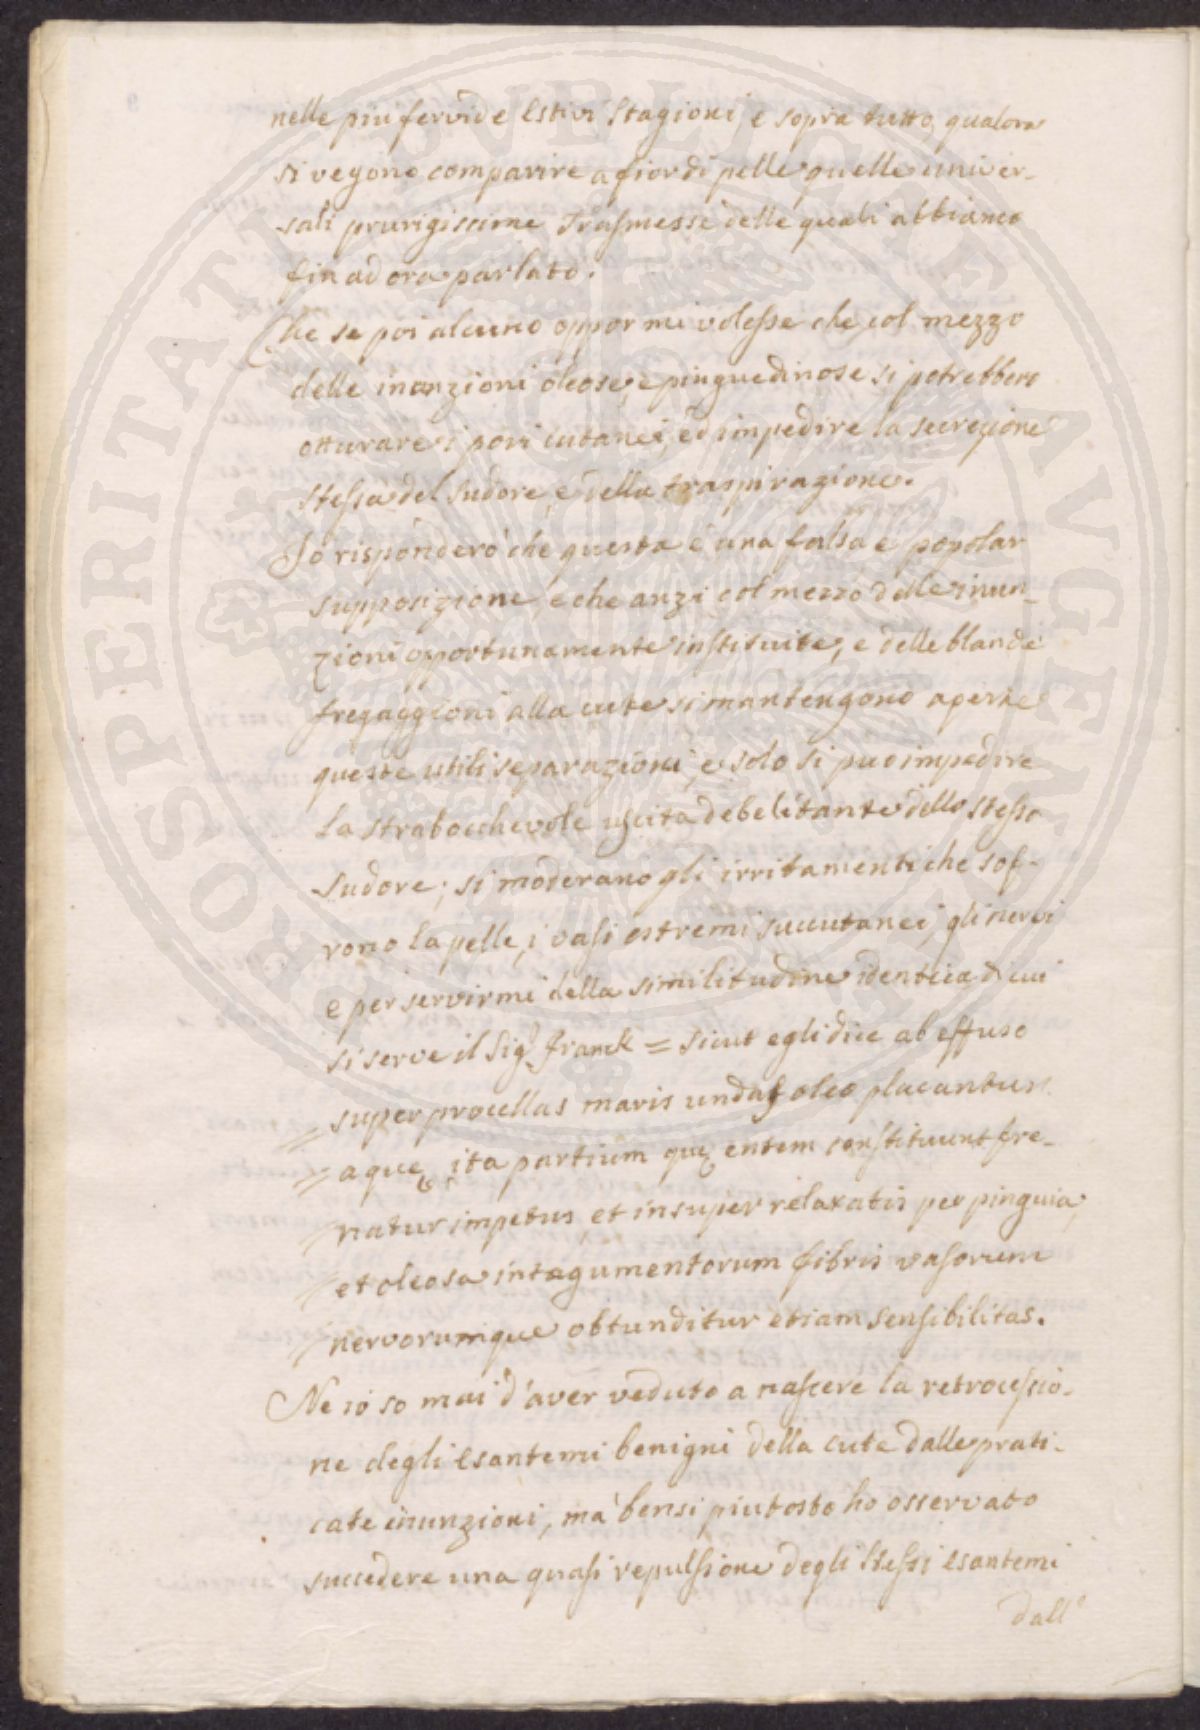 nelle piu fervide Estivi Stagioni, e sopra tutto, qualora
si vegono comparire a fior di pelle quelle univer-
sali prurigissime Trasmesse delle quali abbiamo
fin ad ora parlato.
Che se poi alcuno oppormi volesse che, col mezzo
delle inonzioni oleose, e pinguedinose si potrebbero
otturare i pori cutanei, ed impedire la secrezione
stessa del Sudore, e della traspirazione.
Io risponderò che questa è una falsa, e popolar
supposizione, e che anzi col mezzo delle inun-
zioni opportunamente instituite, e delle blande
fregaggioni alla cute si mantengono aperte
queste utili separazioni, e solo si puo impedire
la strabocchevole uscita debelitante dello stesso
Sudore; si moderano gli irritamenti che sof-
rono la pelle, i vasi estremi succutanei, gli nervi
e per servirmi della similitudine identica di cui
si serve il Sig.r Franck = sicut egli dice ab effuso
= super procellas maris undas oleo placantur
= aquę, ita partium quę entem constituunt fre-
= natur impetus, et insuper relaxatis per pinguia,
= et oleosa integumentorum fibris vasorum
= nervorumque obtunditur etiam sensibilitas.
Ne io so mai d'aver veduto a nascere la retrocessio-
ne degli Esantemi benigni della cute dalle prati-
cate inunzioni, mà bensi piutosto ho osservato
succedere una quasi repulsione degli stessi esantemi
dall'
PROSPERITATI PVBLICAE AVGENDAE